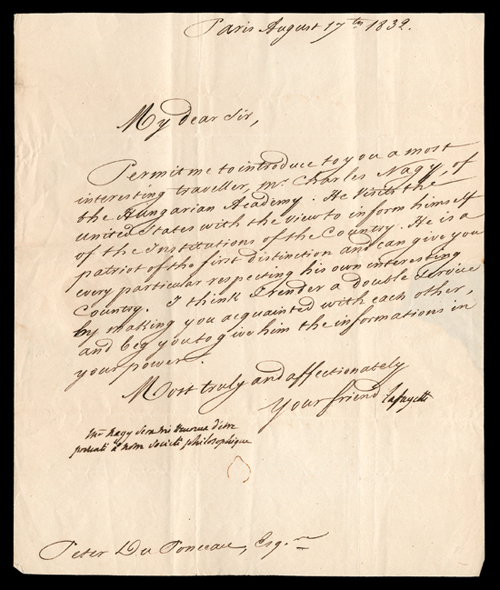 Paris August 17th 1832.
My dear Sir,
Permit me to introduce to you a most
interesting traveller, Mr. Charles Nagy, of
the Hungarian Academy. He visits the
united States with the view to inform himself
of the Institutions of the Country. He is a
patriot of the first distinction and can give you
every particular respecting his own interesting
Country. I think I render a double Service
by making you acquainted with each other,
and beg you to give him the informations in
your power.
Most truly and affectionately
Your friend Lafayette
Mr Nagy sera très heureux d'etre
presenté a notre société philosophique
Peter Du Ponceau, Esqre